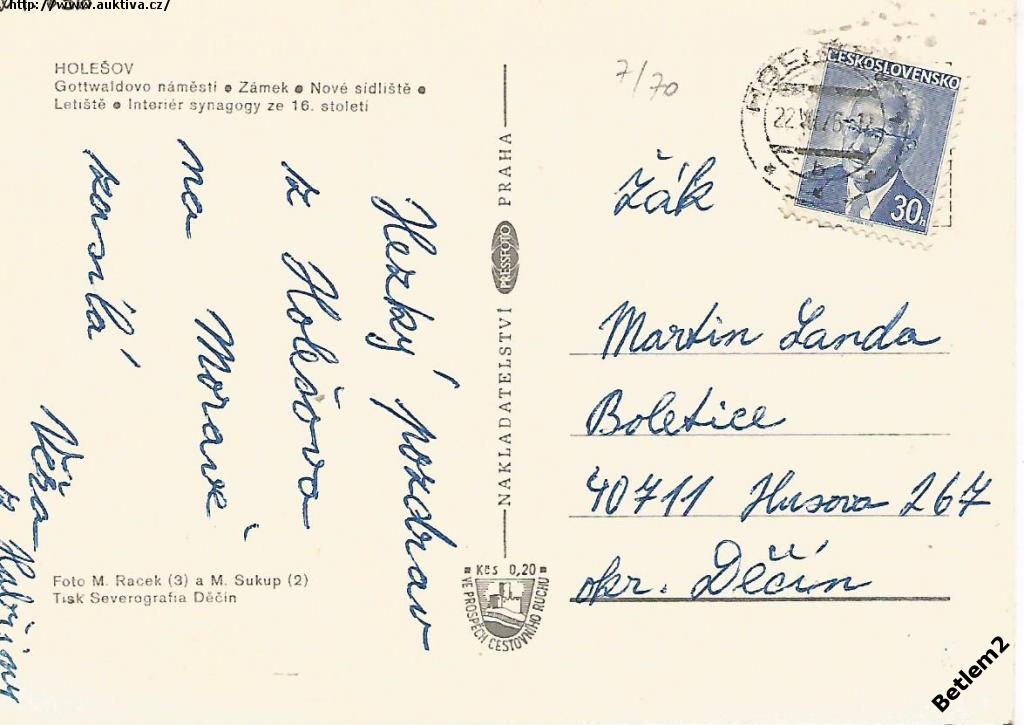 http://www.auktiva.cz/
HOLEŠOV
Gottwaldovo náměstí ● Zámek ● Nové sídliště ●
Letiště ● Interiér synagogy ze 16. století
7/70
ČESKOSLOVENSKO
30h
Hezký pozdrav
z Holešova
na Moravě
zasílá
Věra
z
NAKLADATELSTVÍ PRESSFOTO PRAHA
Žák
Martin Landa
Boletice
40711 Husova 267
okr. Děčín
Foto M. Racek (3) a M. Sukup (2)
Tisk Severografia Děčín
Kčs 0,20
VE PROSPĚCH CESTOVNÍHO RUCHU
Betlem2